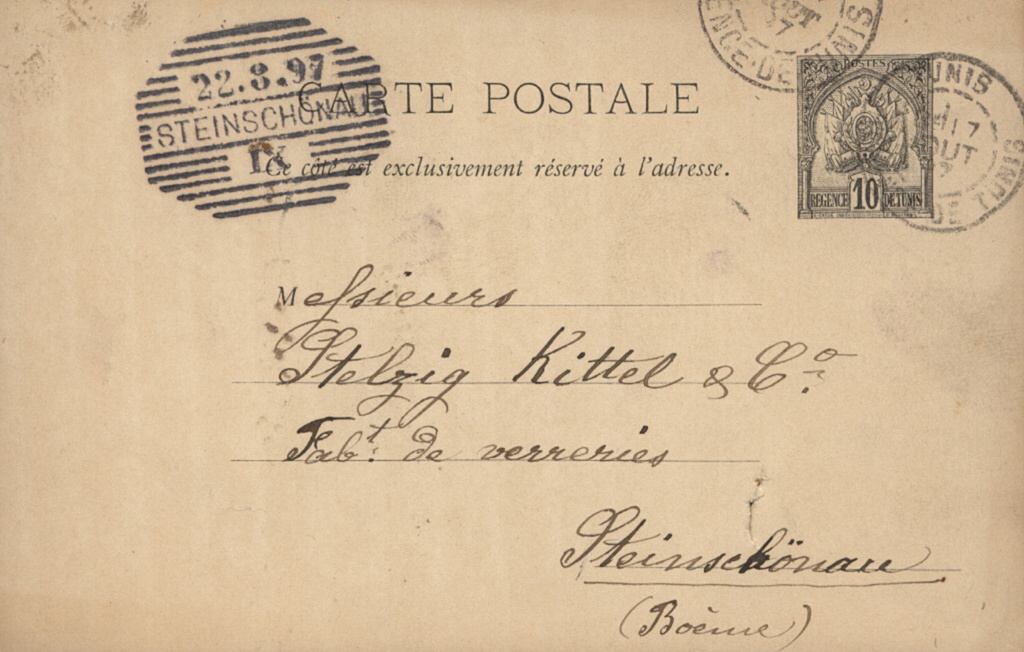 22.8.97
STEINSCHÖNAU
IX
CARTE POSTALE
Ce côté est exclusivement réservé à l'adresse.
POSTES
REGENCE 10 DE TUNIS
TUNIS
17
OUT
DE TUNIS
Messieurs
Stelzig Kittel & Cº
Fabt. de verreries
Steinschönau
(Boème)